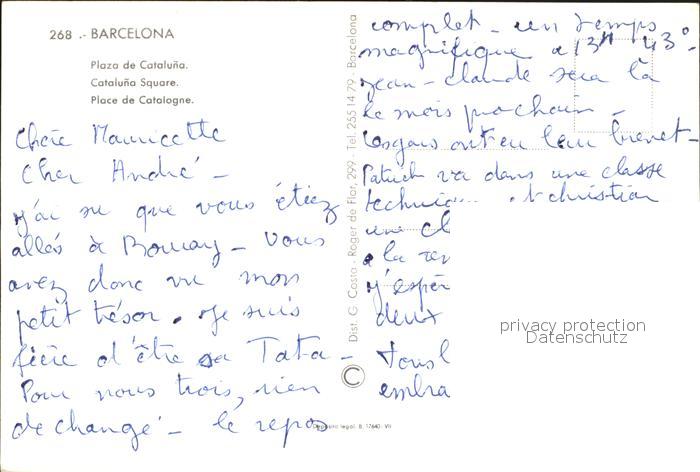 268 .- BARCELONA
Plaza de Cataluña.
Cataluña Square.
Place de Catalogne.
Chère Mauricette
Cher André -
j'ai su que vous étiez
allés à - vous
avez donc vu mon
petit trésor. je suis
fière d'être sa Tata -
Pour nous trois, rien
de changé - le repo
Dist. G. Costa - Roger de Flor, 299 - Tel. 255 14 79 - Barcelona
Depósito legal. B. 17640 - VII
complet - un temps
magnifique
jean-claude sera là
le mois prochain -
Les gars ont eu leur brevet -
Patrick va dans une classe
technic christian
une cl
a la ren
j'espèr
deux
Tous l
embra
privacy protection
Datenschutz